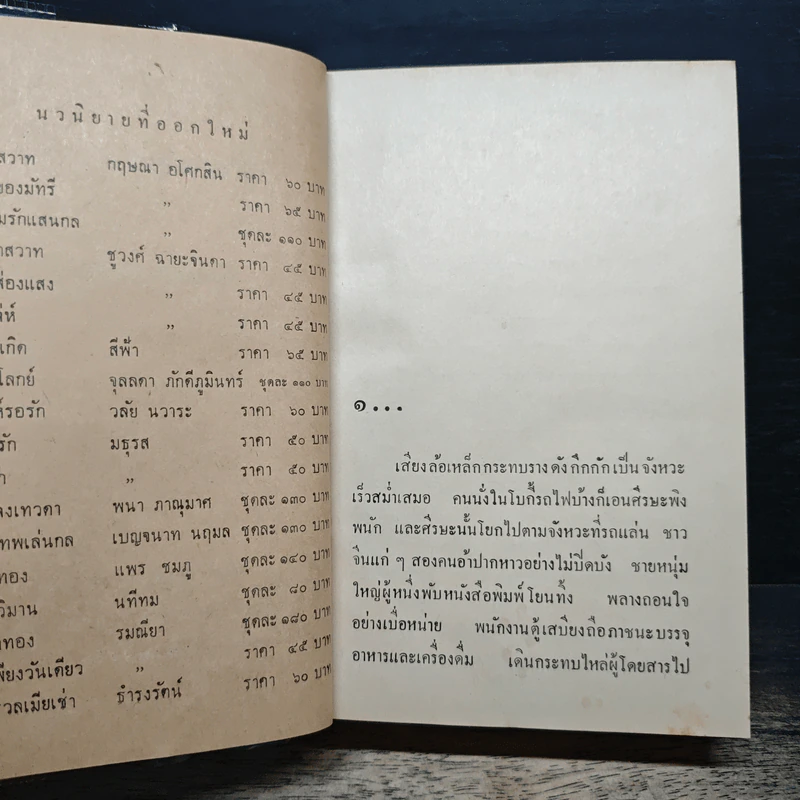 นวนิยายที่ออกใหม่
สวาท กฤษณา อโศกสิน ราคา ๖๐ บาท
ของมัทรี ,, ราคา ๖๕ บาท
มรักแสนกล ,, ชุดละ ๑๑๐ บาท
าสวาท ชูวงศ์ ฉายะจินดา ราคา ๔๕ บาท
ส่องแสง ,, ราคา ๔๕ บาท
ห์ ,, ราคา ๔๕ บาท
เกิด สีฟ้า ราคา ๖๕ บาท
โลกย์ จุลลดา ภักดีภูมินทร์ ชุดละ ๑๑๐ บาท
ห์รอรัก วลัย นวาระ ราคา ๖๐ บาท
รัก มธุรส ราคา ๕๐ บาท
า ,, ราคา ๕๐ บาท
ลงเทวดา พนา ภาณุมาศ ชุดละ ๑๓๐ บาท
ทพเล่นกล เบญจนาท นฤมล ชุดละ ๑๓๐ บาท
ทอง แพร ชมภู ชุดละ ๑๔๐ บาท
วิมาน นทีทม ชุดละ ๘๐ บาท
าทอง รมณียา ชุดละ ๑๘๐ บาท
พียงวันเดียว ,, ราคา ๔๕ บาท
วลเมียเช่า ธำรงรัตน์ ราคา ๖๐ บาท
๑...
เสียงล้อเหล็กกระทบรางดังกึกกักเป็นจังหวะ
เร็วสม่ำเสมอ คนนั่งในโบกี้รถไฟบ้างก็เอนศีรษะพิง
พนัก และศีรษะนั้นโยกไปตามจังหวะที่รถแล่น ชาว
จีนแก่ ๆ สองคนอ้าปากหาวอย่างไม่ปิดบัง ชายหนุ่ม
ใหญ่ผู้หนึ่งพับหนังสือพิมพ์โยนทิ้ง พลางถอนใจ
อย่างเบื่อหน่าย พนักงานตู้เสบียงถือภาชนะบรรจุ
อาหารและเครื่องดื่ม เดินกระทบไหล่ผู้โดยสารไป